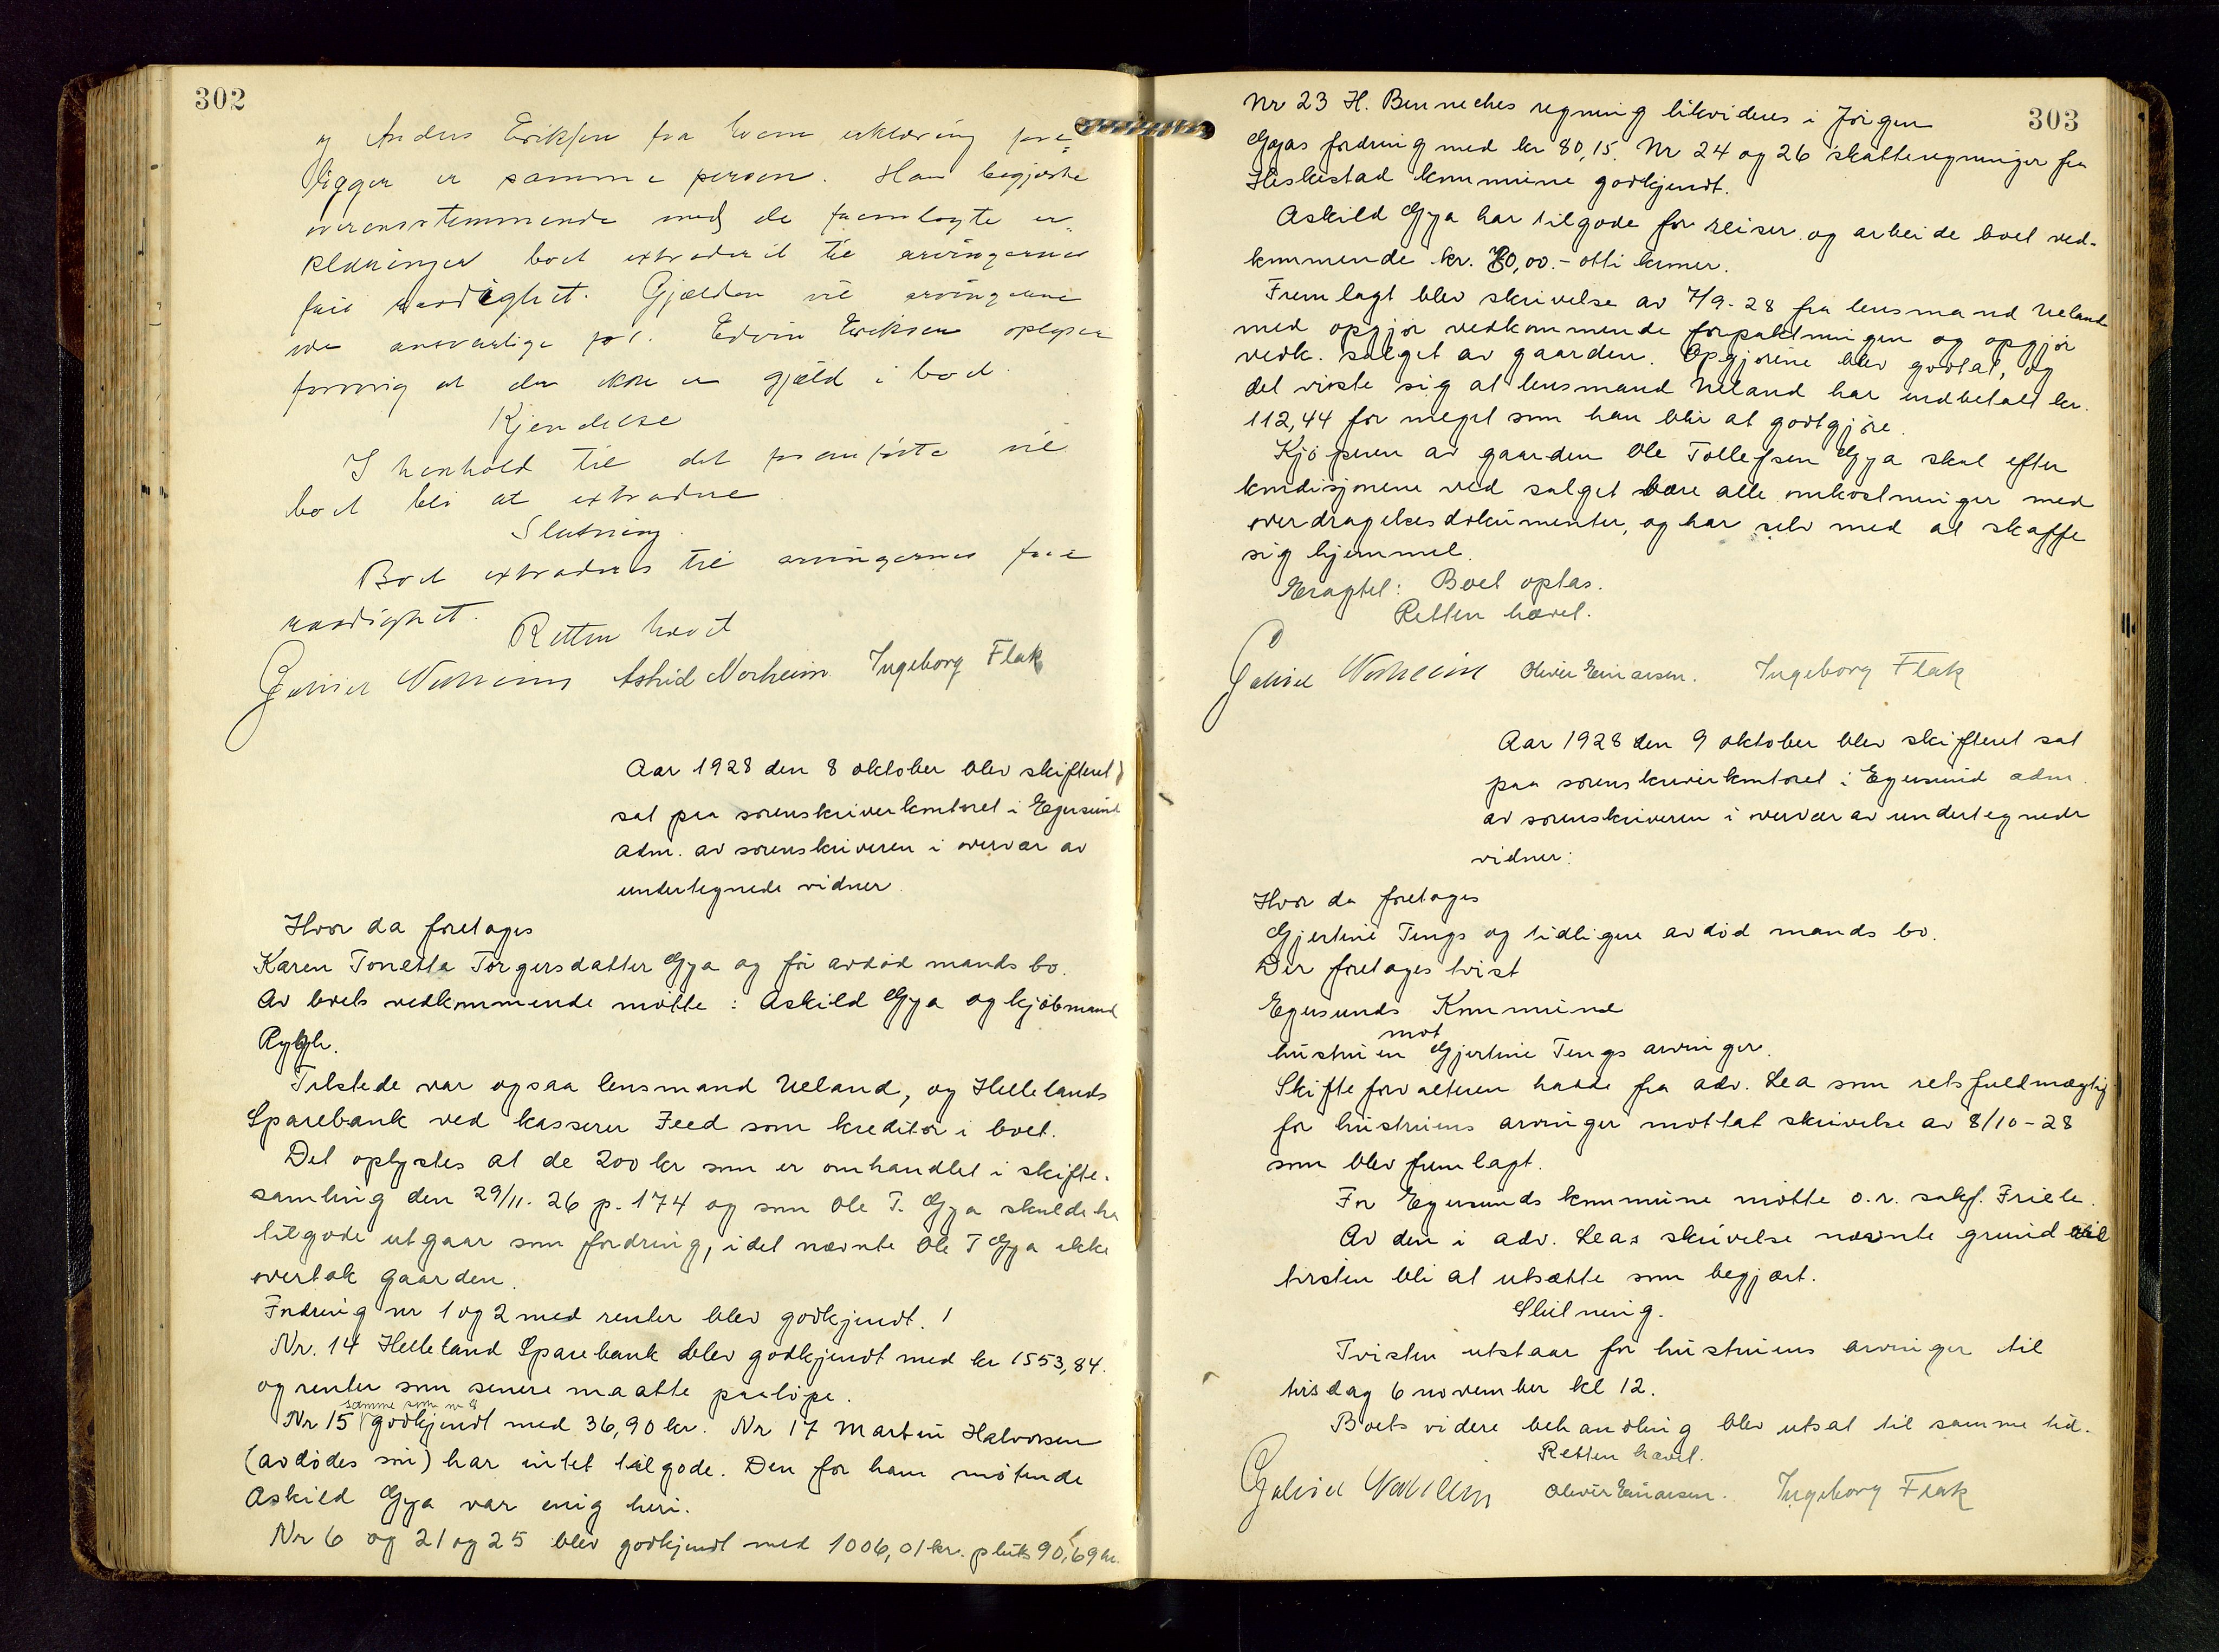 302
og Anders Eriksen fra hvem erklæring fore=
ligger er samme person. Han begjærte
overensstemmende med de fremlagte er=
klæringer boet extradert til arvingernes
frie raadighet. Gjælden vil arvingerne
være ansvarlige for. Edvin Eriksen oplyser
forøvrig at der ikke er gjæld i boet.
Kjendelse
I henhold til det fremførte vil
boet bli at extradere
Slutning.
Boet extraderes til arvingernes frie
raadighet.
Retten hævet
Gabriel Norheim Astrid Norheim Ingeborg Flak
Aar 1928 den 8 oktober blev skifteret
sat paa sorenskriverkontoret i Egersund
adm. av sorenskriveren i overvær av
undertegnede vidner.
Hvor da foretages
Karen Tonette Torgersdatter Gya og før avdød mands bo.
Av boets vedkommende møtte: Askild Gya og kjøbmand
Rykje.
Tilstede var ogsaa lensmand Ueland, og Hellelands
Sparebank ved kasserer Feed som kreditor i boet.
Det oplystes at de 200 kr som er omhandlet i skifte-
samling den 29/11. 26 p. 174 og som Ole T. Gya skulde ha
tilgode utgaar som fordring, idet nævnte Ole T Gya ikke
overtok gaarden.
Fordring nr 1 og 2 med renter blev godkjendt.
Nr. 14 Helleland Sparebank blev godkjendt med kr 1553,84.
og renter som senere maatte paaløpe.
samme som nr 8
Nr 15 godkjendt med 36,90 kr. Nr 17 Martin Halvorsen
(avdødes søn) har intet tilgode. Den for ham møtende
Askild Gya var enig heri.
Nr 6 og 21 og 25 blev godkjendt med 1006,01 kr. pluss 90,69 kr.
303
Nr 23 H. Benneches regning likvideres i Jørgen
Gyas fordring med kr 80,15. Nr 24 og 26 skatteregninger fra
Heskestad kommune godkjendt.
Askild Gya har tilgode for reiser og arbeide boet ved-
kommende kr. 80,00.- otti kroner.
Fremlagt blev skrivelse av 7/9-28 fra lensmand Ueland
med opgjør vedkommende forpaktningen og opgjør
vedk. salget av gaarden. Opgjørene blev godtat, og
det viste sig at lensmand Ueland har indbetalt kr.
112,44 for meget som han blir at godtgjøre.
Kjøperen av gaarden Ole Tollefsen Gya skal efter
kondisjonene ved salget bære alle omkostninger med
overdragelsesdokumenter, og har selv med at skaffe
sig hjemmel.
Eragtet: Boet optas.
Retten hævet.
Gabriel Norheim Oliver Einarsen. Ingeborg Flak
Aar 1928 den 9 oktober blev skifteret sat
paa sorenskriverkontoret i Egersund adm.
av sorenskriveren i overvær av undertegnede
vidner:
Hvor da foretages
Gjertine Tengs og tidligere avdød mands bo.
Der foretages tvist
Egersunds Kommune
mot
hustruen Gjertine Tengs arvinger.
Skifteforvalteren hadde fra adv. Lea som retsfuldmægtig
for hustruens arvinger mottat skrivelse av 8/10-28
som blev fremlagt.
For Egersunds kommune møtte o.r. sakf. Friele.
Av den i adv. Leas skrivelse nævnte grund vil
tvisten bli at utsætte som begjært.
Slutning.
Tvisten utstaar for hustruens arvinger til
tirsdag 6 november kl 12.
Boets videre behandling blev utsat til samme tid.
Retten hævet.
Gabriel Norheim Oliver Einarsen. Ingeborg Flak